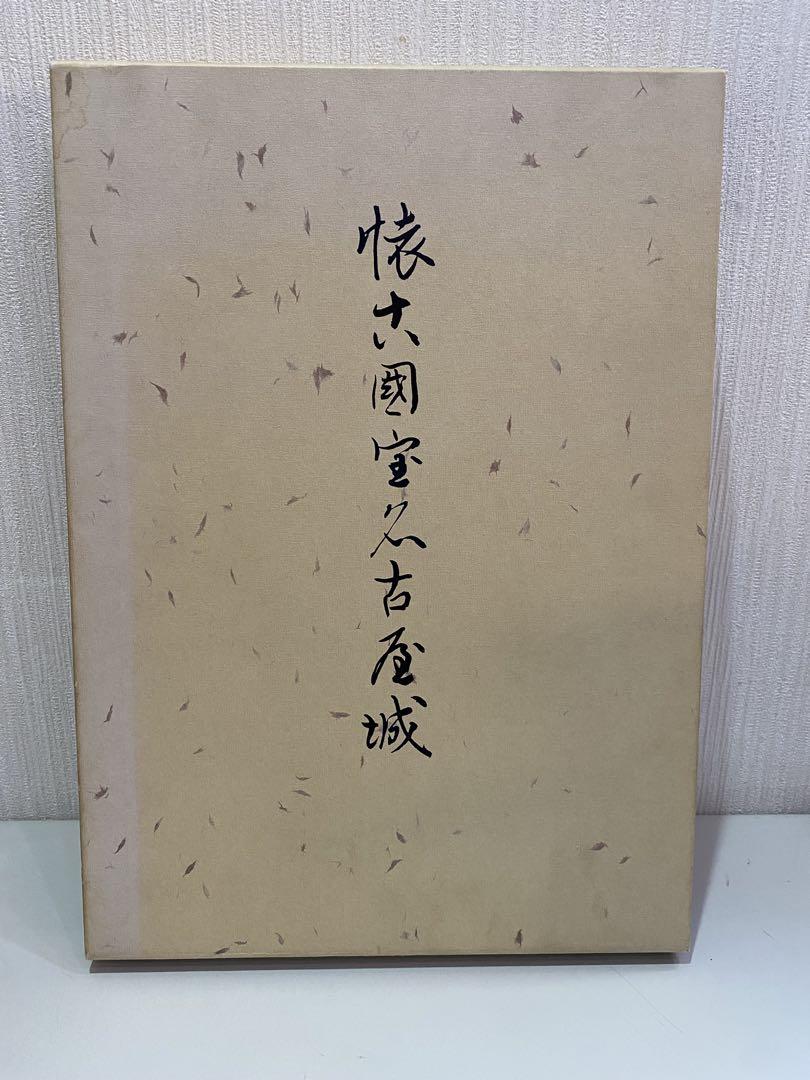 懐古國宝名古屋城